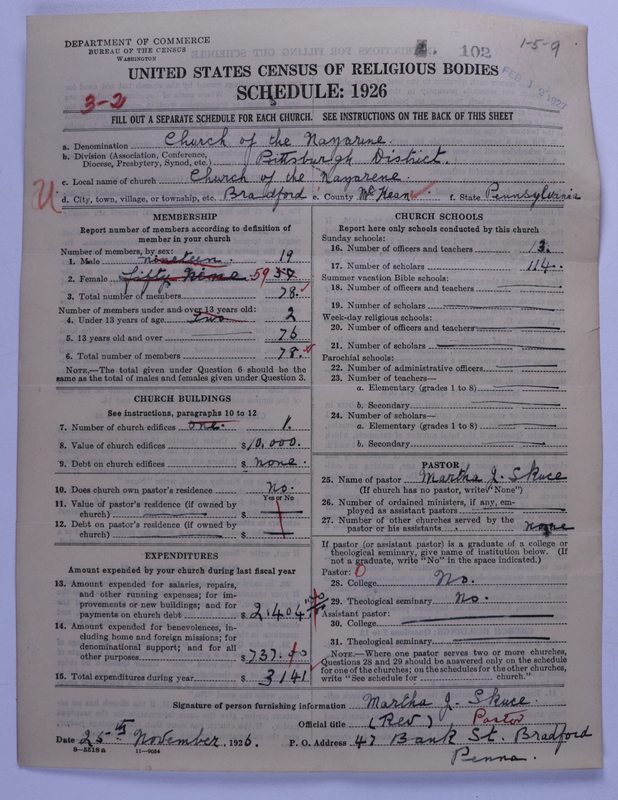 DEPARTMENT OF COMMERCE
BUREAU OF THE CENSUS
WASHINGTON
102
1-5-9
UNITED STATES CENSUS OF RELIGIOUS BODIES
FEB 1 1927
3-2
SCHEDULE: 1926
FILL OUT A SEPARATE SCHEDULE FOR EACH CHURCH. SEE INSTRUCTIONS ON THE BACK OF THIS SHEET
a. Denomination Church of the Nazarene.
b. Division (Association, Conference, Diocese, Presbytery, Synod, etc.) Pittsburgh District.
c. Local name of church Church of the Nazarene.
U
d. City, town, village, or township, etc. Bradford e. County McKean f. State Pennsylvania
MEMBERSHIP
Report number of members according to definition of
member in your church
Number of members, by sex:
1. Male nineteen. 19
2. Female fifty nine 59
3. Total number of members 78.
Number of members under and over 13 years old:
4. Under 13 years of age two 2
5. 13 years old and over 76
6. Total number of members 78.
NOTE.—The total given under Question 6 should be the
same as the total of males and females given under Question 3.
CHURCH BUILDINGS
See instructions, paragraphs 10 to 12
7. Number of church edifices one. 1.
8. Value of church edifices $10,000.
9. Debt on church edifices $ none.
10. Does church own pastor's residence No.
Yes or No
11. Value of pastor's residence (if owned by
church) $
12. Debt on pastor's residence (if owned by
church) $
EXPENDITURES
Amount expended by your church during last fiscal year
13. Amount expended for salaries, repairs,
and other running expenses; for im-
provements or new buildings; and for
payments on church debt $ 2,404
14. Amount expended for benevolences, in-
cluding home and foreign missions; for
denominational support; and for all
other purposes $737.40
15. Total expenditures during year $ 3141
CHURCH SCHOOLS
Report here only schools conducted by this church
Sunday schools:
16. Number of officers and teachers 13.
17. Number of scholars 114
Summer vacation Bible schools:
18. Number of officers and teachers
19. Number of scholars
Week-day religious schools:
20. Number of officers and teachers
21. Number of scholars
Parochial schools:
22. Number of administrative officers
23. Number of teachers—
a. Elementary (grades 1 to 8)
b. Secondary
24. Number of scholars—
a. Elementary (grades 1 to 8)
b. Secondary
PASTOR
25. Name of pastor Martha J. Skuce
(If church has no pastor, write "None")
26. Number of ordained ministers, if any, em-
ployed as assistant pastors
27. Number of other churches served by the
pastor or his assistants none
If pastor (or assistant pastor) is a graduate of a college or
theological seminary, give name of institution below. (If
not a graduate, write "No" in the space indicated.)
Pastor: 0
28. College No.
29. Theological seminary No.
Assistant pastor:
30. College
31. Theological seminary
NOTE.—Where one pastor serves two or more churches,
Questions 28 and 29 should be answered only on the schedule
for one of the churches; on the schedules for the other churches,
write "See schedule for church."
Signature of person furnishing information Martha J. Skuce.
Official title (Rev) Pastor
Date 25th November, 1926. P. O. Address 47 Bank St. Bradford
Penna.
8-5518a 11-9064